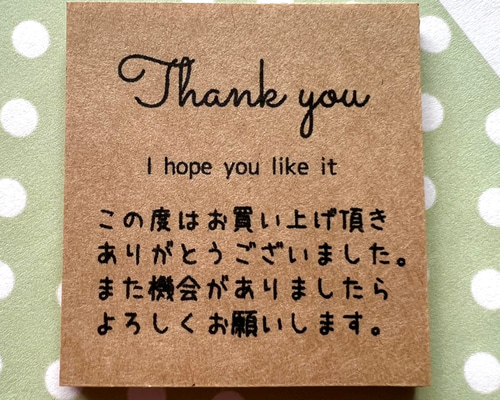 Thank you
I hope you like it
この度はお買い上げ頂き
ありがとうございました。
また機会がありましたら
よろしくお願いします。